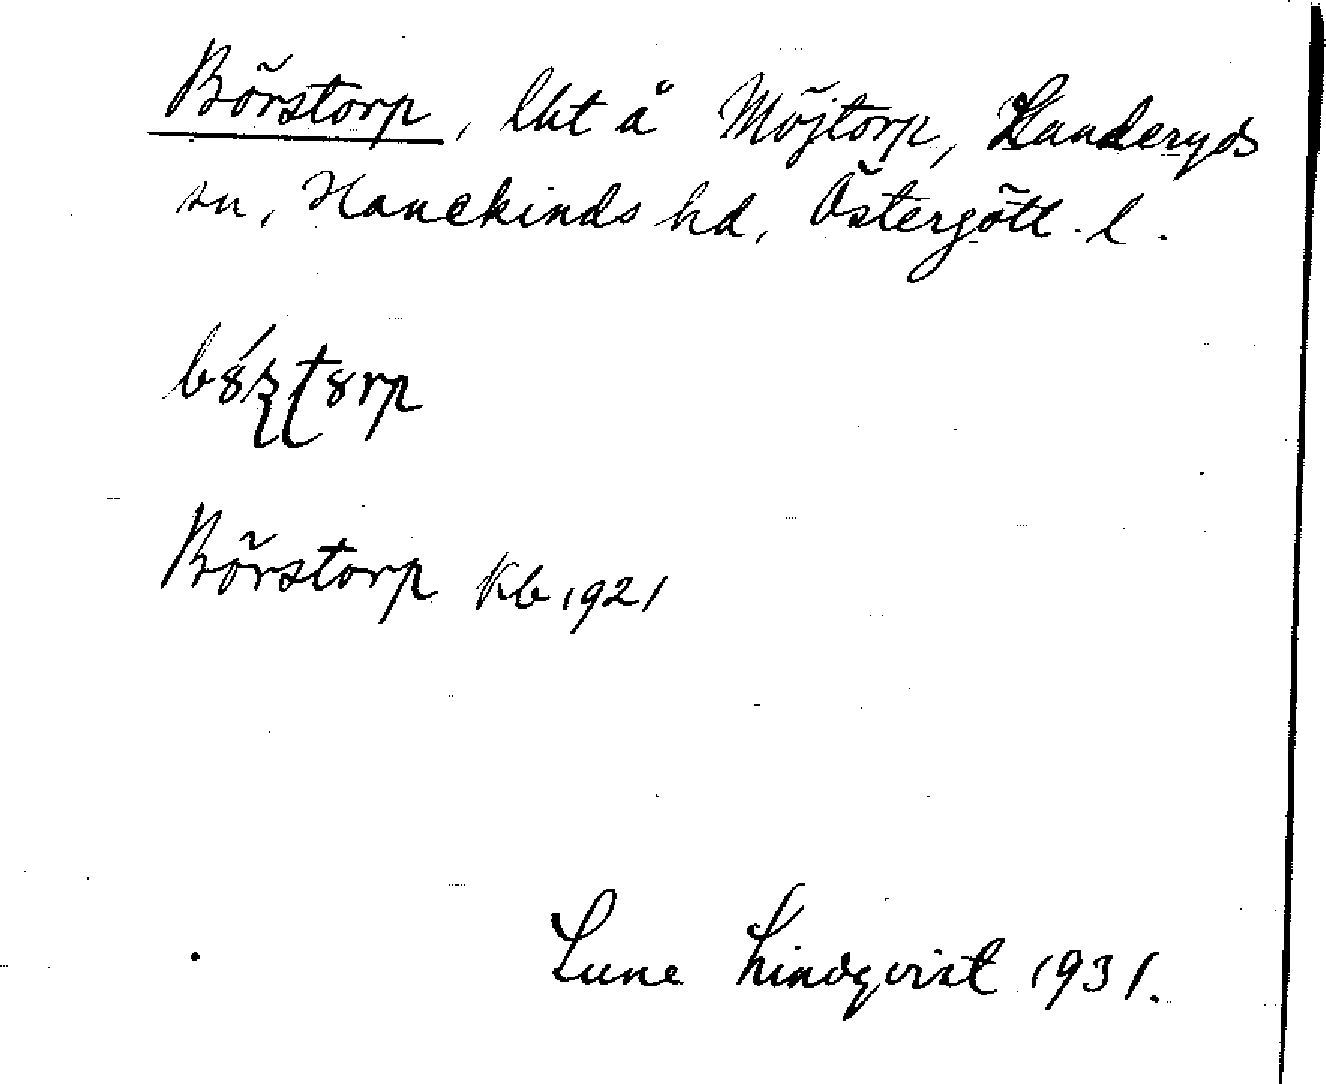 Börstorp, lht å Möjtorp, Landeryds
sn, Hanekinds hd, Östergötl. l.
Börstorp Kb 1921
Sune Lindqvist 1931.